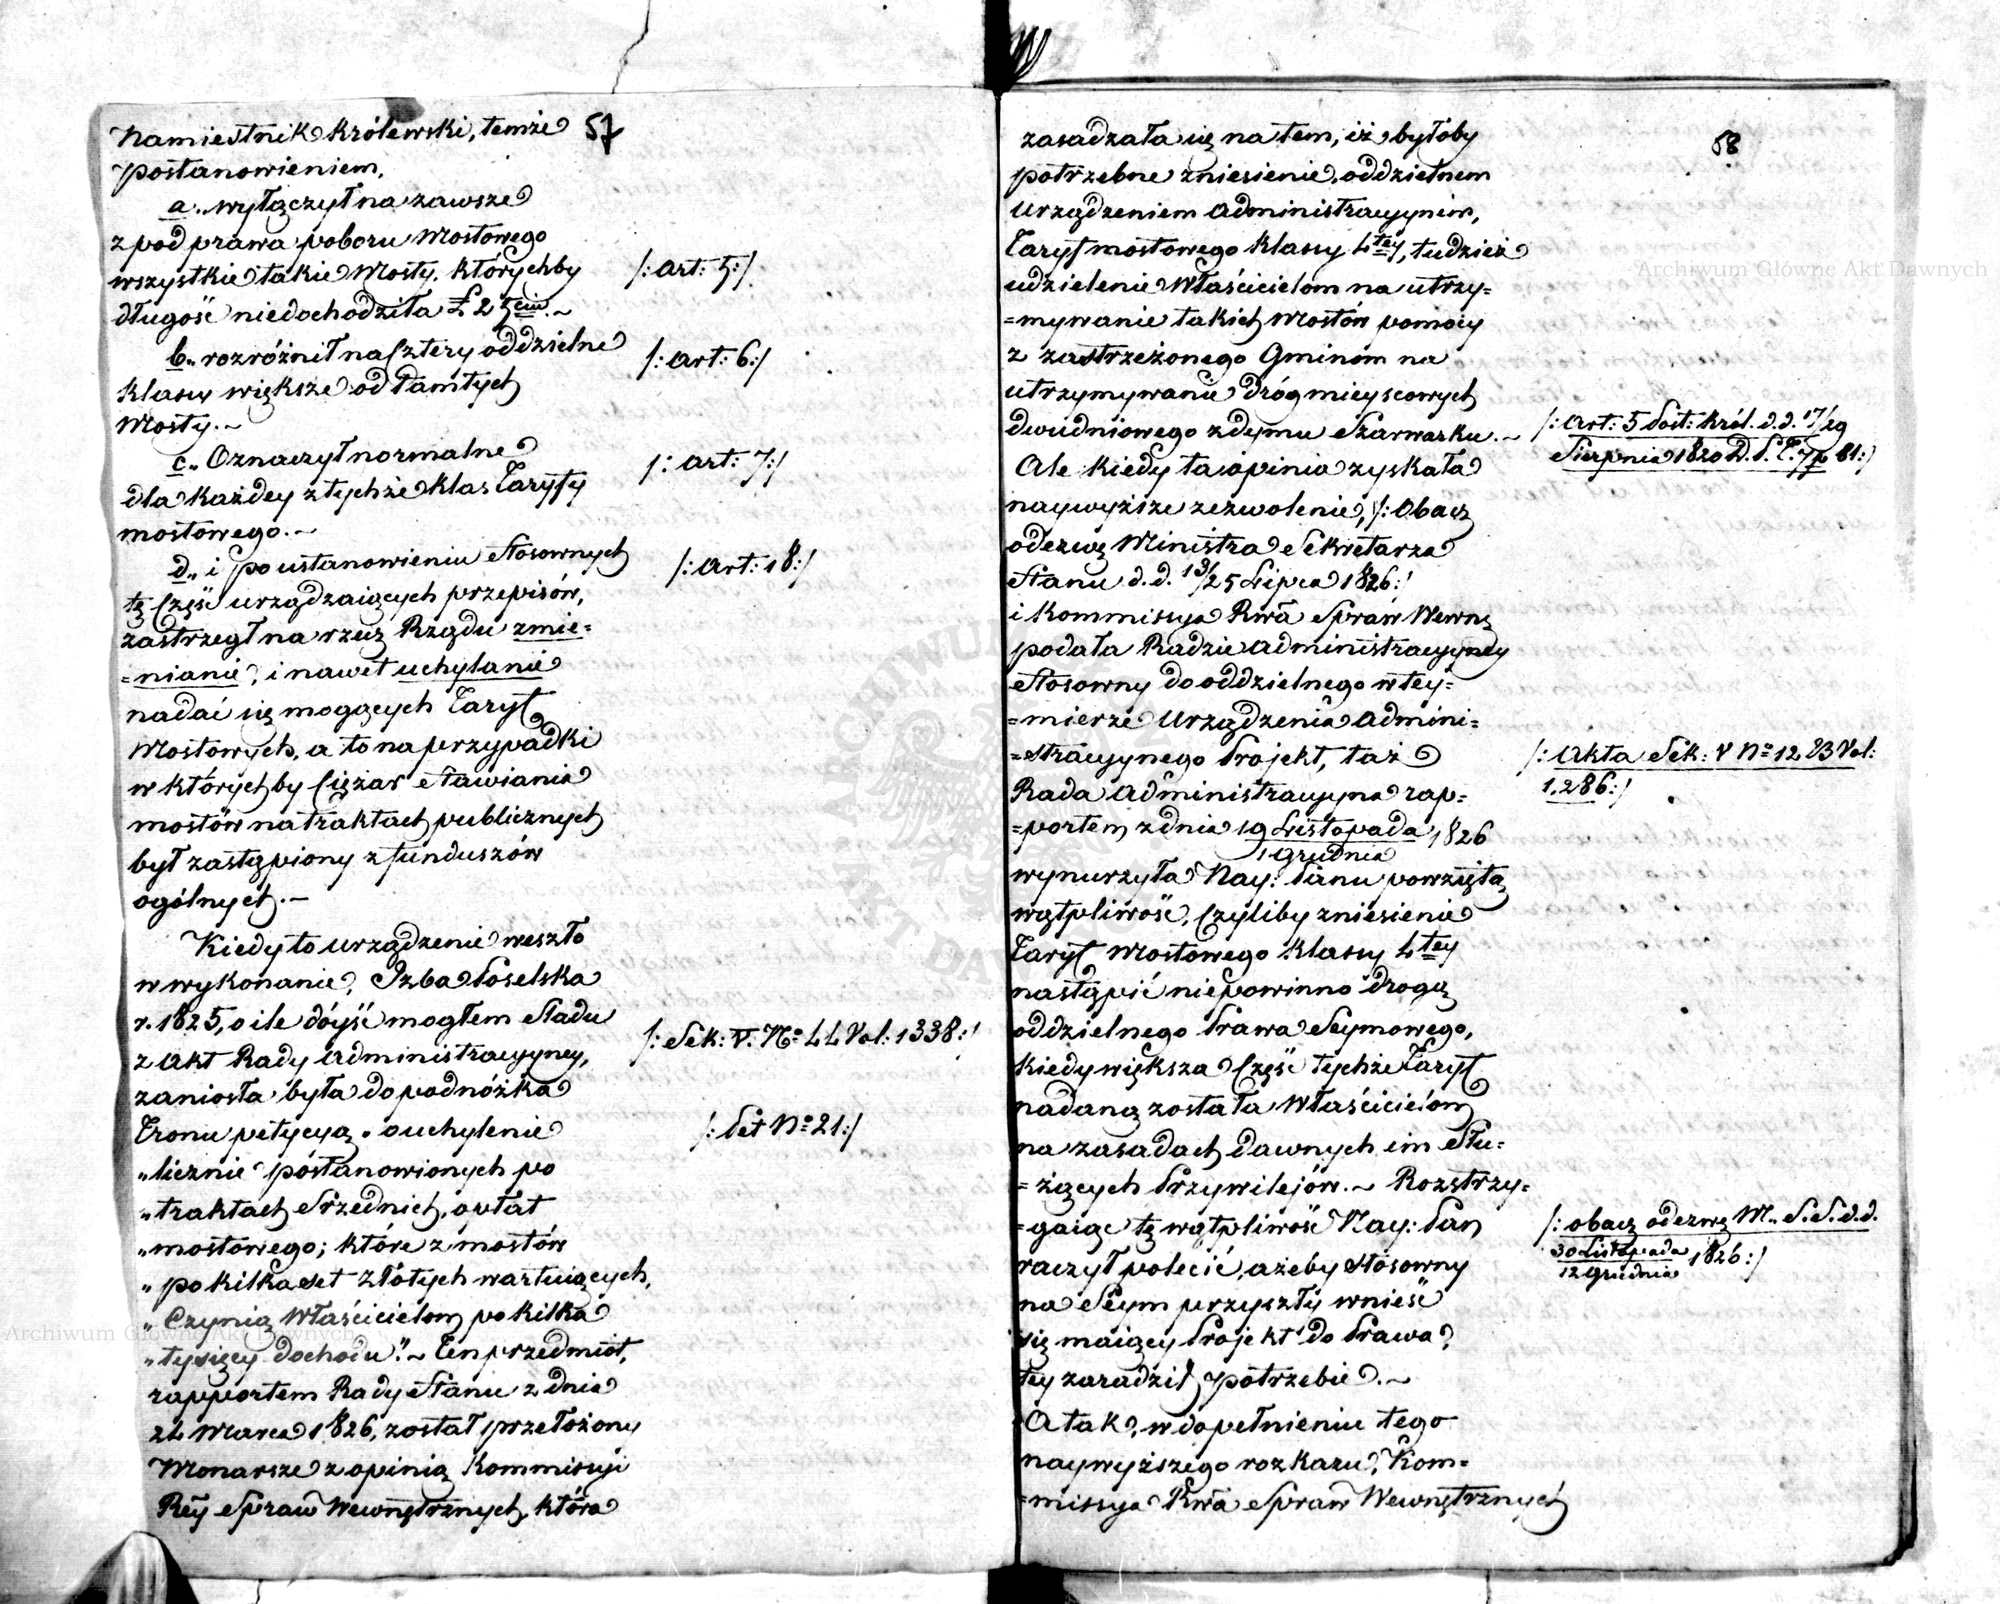 57
Namiestnik Królewski, temże
postanowieniem,
a.. wyłączył na zawsze
z pod prawa poboru Mostowego
wszystkie takie Mosty, którychby
/: Art: 5:/
długość niedochodziła Ł 25ciu.~
b.. rozróżnił na Cztery oddzielne
/: Art: 6:/
Klassy większe od tamtych
Mosty.~
c.. Oznaczył normalne
/: Art: 7:/
dla każdey z tychże klas Taryfy
mostowego.~
d.. i po ustanowieniu stosownych
/: Art: 18:/
tę Część urządzaiących przepisów,
zastrzegł na rzecz Rządu zmie=
=nianie, i nawet uchylanie
nadać się mogących Taryf
Mostowych, a to na przypadki
w którychby Ciężar stawiania
mostów na traktach publicznych
był zastąpiony z funduszów
ogólnych.~
Kiedy to urządzenie weszło
w wykonanie, Izba Poselska
r. 1825, o ile dóyść mogłem śladu
z Akt Rady Administracyyney,
/: Sek: V. No 44 Vol: 1338:/
zaniosła była do podnóżka
Tronu petycyą „o uchylenie
/: Pet No 21:/
„licznie postanowionych po
„traktach średnich, opłat
„mostowego; które z mostów
„po kilkaset złotych wartuiących,
„Czynią Właścicielom po kilka
„tysięcy dochodu.”~ Ten przedmiot,
rapportem Rady Stanu z dnia
24 Marca 1826, został przełożony
Monarsze z opinią Kommissyi
Rey Spraw Wewnętrznych, która
58
zasadzała się na tem, iż byłoby
potrzebne zniesienie, oddzielnem
Urządzeniem Administracyynem,
Taryf mostowego Klassy 4tey, tudzież
udzielenie Właścicielom na utrzy=
=mywanie takich Mostów pomocy
z zastrzeżonego Gminom na
utrzymywanie dróg mieyscowych
dwudniowego z dymu Szarwarku.~
/: Art: 5 Post: Król. d. d. 17/29
Sierpnia 1820 D. P. T. 7 p 81:/
Ale kiedy ta opinia zyskała
naywyższe zezwolenie, /: Obacz
odezwę Ministra Sekretarza
Stanu d. d. 13/25 Lipca 1826:/
i Kommissya Rwa Spraw Wewnę
podała Radzie Administracyyney
stosowny do oddzielnego w tey=
=mierze Urządzenia Admini=
=stracyynego Projekt, taż
/: Akta Sek: V No 12 B Vol:
1,286:/
Rada Administracyyna rap=
=portem z dnia 19 Listopada 1826
1 Grudnia
wynurzyła Nay: Panu powziętą
wątpliwość, Czyliby zniesienie
Taryf Mostowego Klassy 4tey
nastąpić niepowinno drogą
oddzielnego Prawa Seymowego,
kiedy większa Część tychże Taryf
nadaną została Właścicielom
na zasadach dawnych im Słu=
=żących Przywilejów.~ Rozstrzy=
=gaiąc tę wątpliwość Nay: Pan
/: obacz odezwę M.. S. S. d. d.
raczył polecić, ażeby stosowny
30 Listopada 1826:/
12 Grudnia
na Seym przyszły wnieść
się maiący Projekt do Prawa,
tey zaradził potrzebie.~
A tak, w dopełnieniu tego
naywyższego rozkazu, Kom=
=missya Rwa Spraw Wewnętrznych
Archiwum Główne Akt Dawnych
Archiwum Główne Akt Dawnych